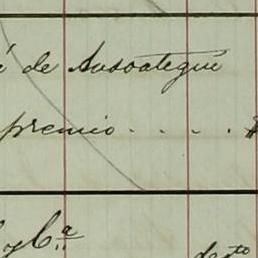 é de Ausoategui
premio . . . . $
y Ca